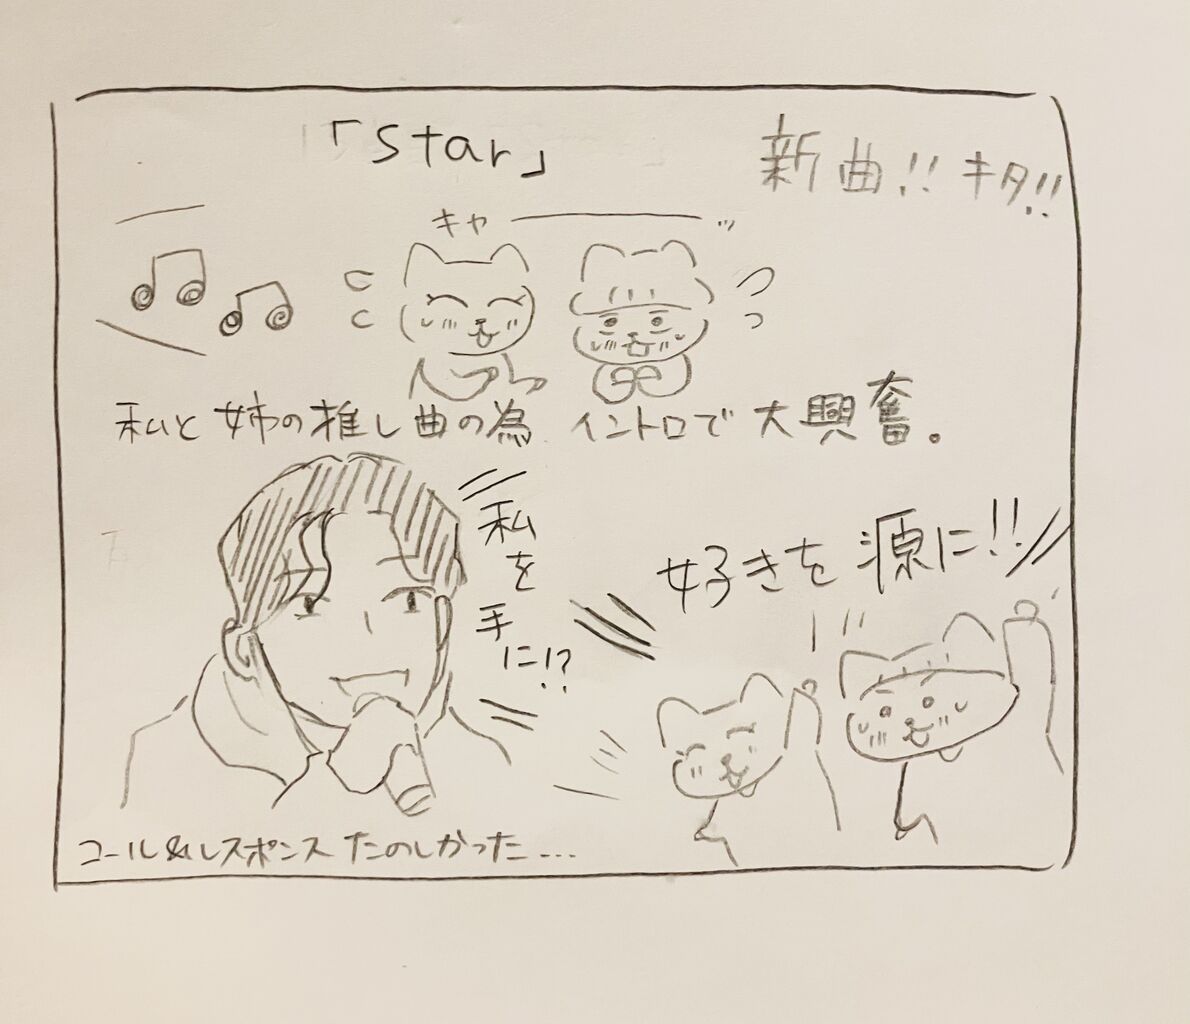 「Star」
新曲!! キタ!!
キャーッ
私と姉の推し曲の為 イントロで大興奮。
私を手に!?
好きを源に!!
コール&レスポンスたのしかった…